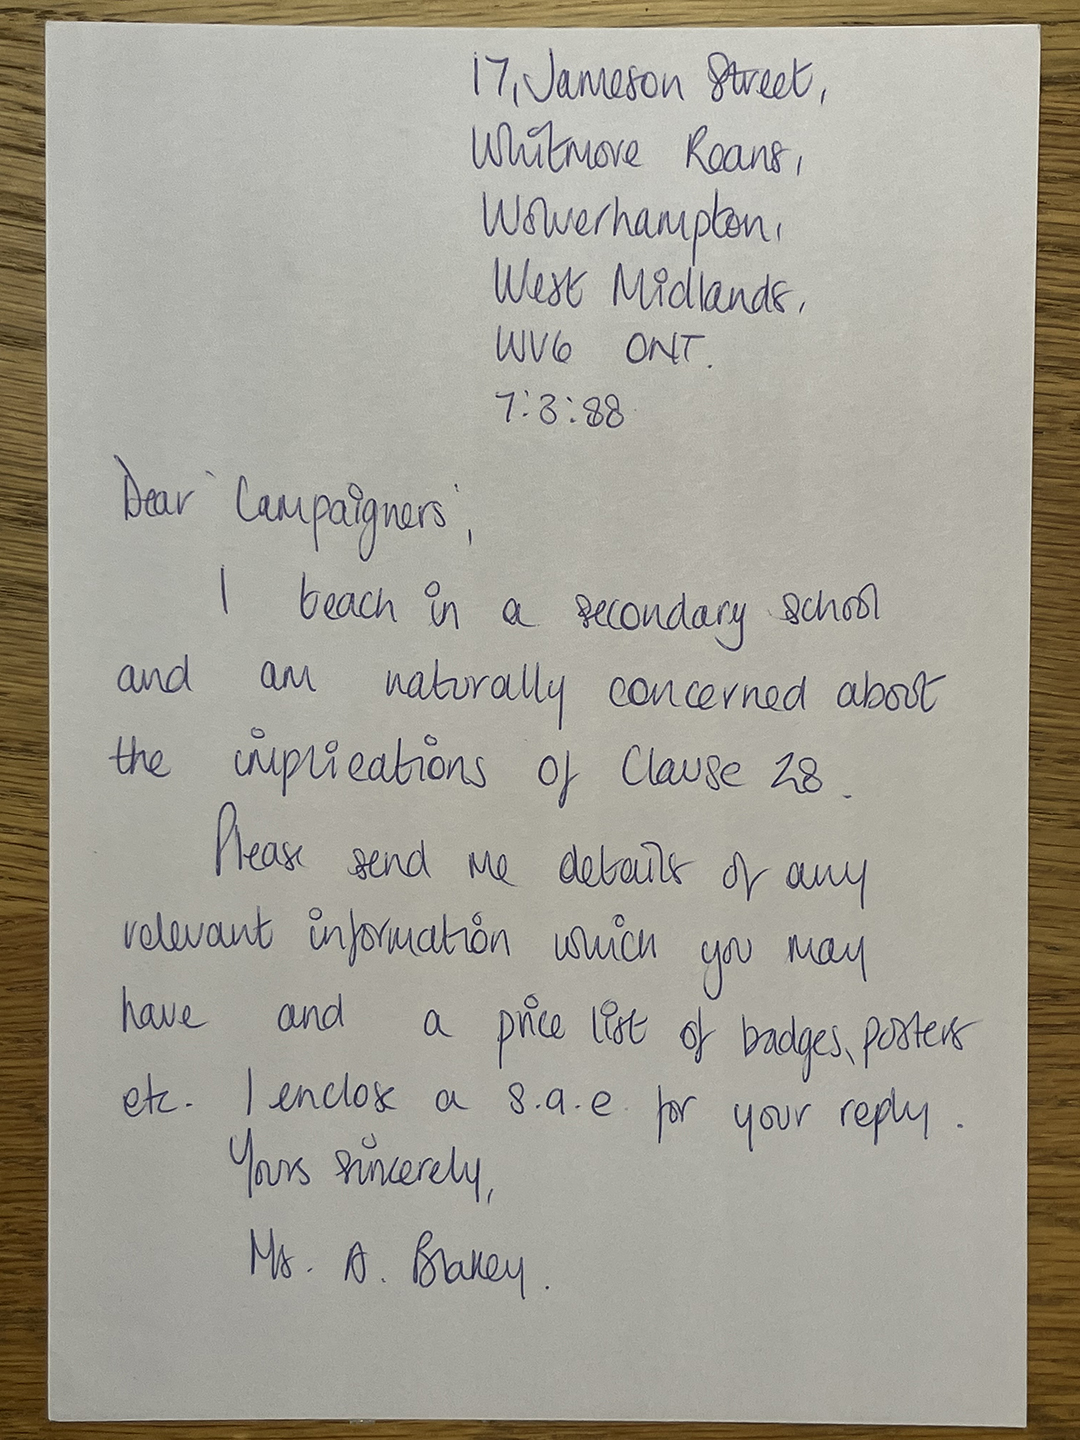 17, Jameson Street,
Whitmore Reans,
Wolverhampton,
West Midlands,
WV6 0NT.
7:3:88
Dear 'Campaigners',
I teach in a secondary school
and am naturally concerned about
the implications of Clause 28.
Please send me details of any
relevant information which you may
have and a price list of badges, posters
etc. I enclose a s.a.e. for your reply.
Yours sincerely,
Ms. A. Blakey.